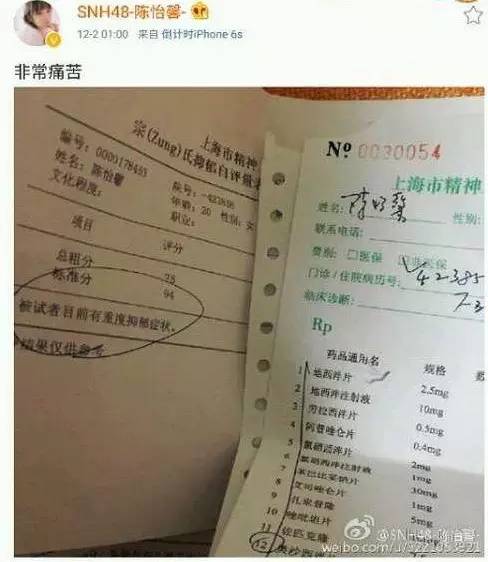 SNH48-陈怡馨-
12-2 01:00 来自 倒计时iPhone 6s
非常痛苦
上海市精神
宗(Zung)氏抑郁自评量表
编号: 0000178465 院号: -422896
姓名: 陈怡馨 年龄: 20 性别: 女
文化程度: 职业:
项目 评分
总粗分 75
标准分 94
被试者目前有重度抑郁症状。
结果仅供参考
№ 0030054
上海市精神
姓名: 陈怡馨 性别:
联系电话:
费别: □医保 □非医保
门诊/住院病历号: 42385
临床诊断:
Rp
药品通用名 规格
1 地西泮片 2.5mg
2 地西泮注射液 10mg
3 劳拉西泮片 0.5mg
4 阿普唑仑片 0.4mg
5 氯硝西泮片 2mg
6 氯硝西泮注射液 1mg
7 苯巴比妥钠片 30mg
8 艾司唑仑片 1mg
9 扎来普隆 5mg
10 唑吡坦片
11 佐匹克隆
12 奥沙西泮片
@SNH48-陈怡馨-